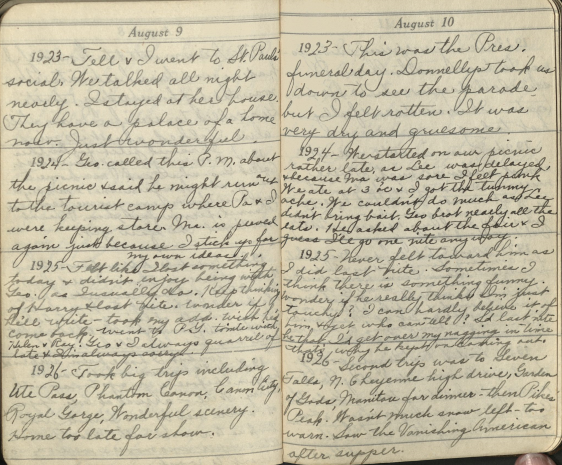 August 9
1923 - Tell & I went to St. Paul's
social. We talked all night
nearly. I stayed at her house.
They have a palace of a home
now. Just wonderful
1924 - Geo. called this P.M. about
the picnic & said he might run us
to the tourist camp where Pa & I
were keeping store. Ma. is peeved
again just because I stick up for
my own ideas.
1925 - Felt like I lost something
today & didn't enjoy being with
Geo. as I usually do. Kept thinking
of Harry & last nite. Wonder if
he'll write - took my add.
went to P.G. tonite with
Helen & Ray. Geo & I always quarrel of
late & I'm always sorry.
1926 - Took big trips including
Ute Pass, Phantom Canon, Canon City,
Royal Gorge, Wonderful scenery.
Home too late for show.
August 10
1923 - This was the Pres.
funeral day. Donnellys took us
down to see the parade
but I felt rotten. It was
very dry and gruesome.
1924 - We started on our picnic
rather late, as Lee was delayed
& because Ma was sore I felt punk
We ate at 3 oc & I got the tummy
ache. We couldn't do much as Lee
didn't bring bait. Geo brot nearly all the
eats. He asked about the fair & I
guess I'll go one nite anyway.
1925 - Never felt toward him as
I did last nite. Sometimes I
think there is something funny &
wonder if he really thinks I'm just
touchy? I can hardly believe it of
him & yet who can tell? Sd last nite
he that I'd get over my nagging in time
why he kept on asking out.
1926 - Second trip was to Seven
Falls, N. Cheyenne high drive, Garden
of Gods. Manitou for dinner - then Pikes
Peak. Wasn't much snow left - too
warm. Saw the Vanishing American
after supper.